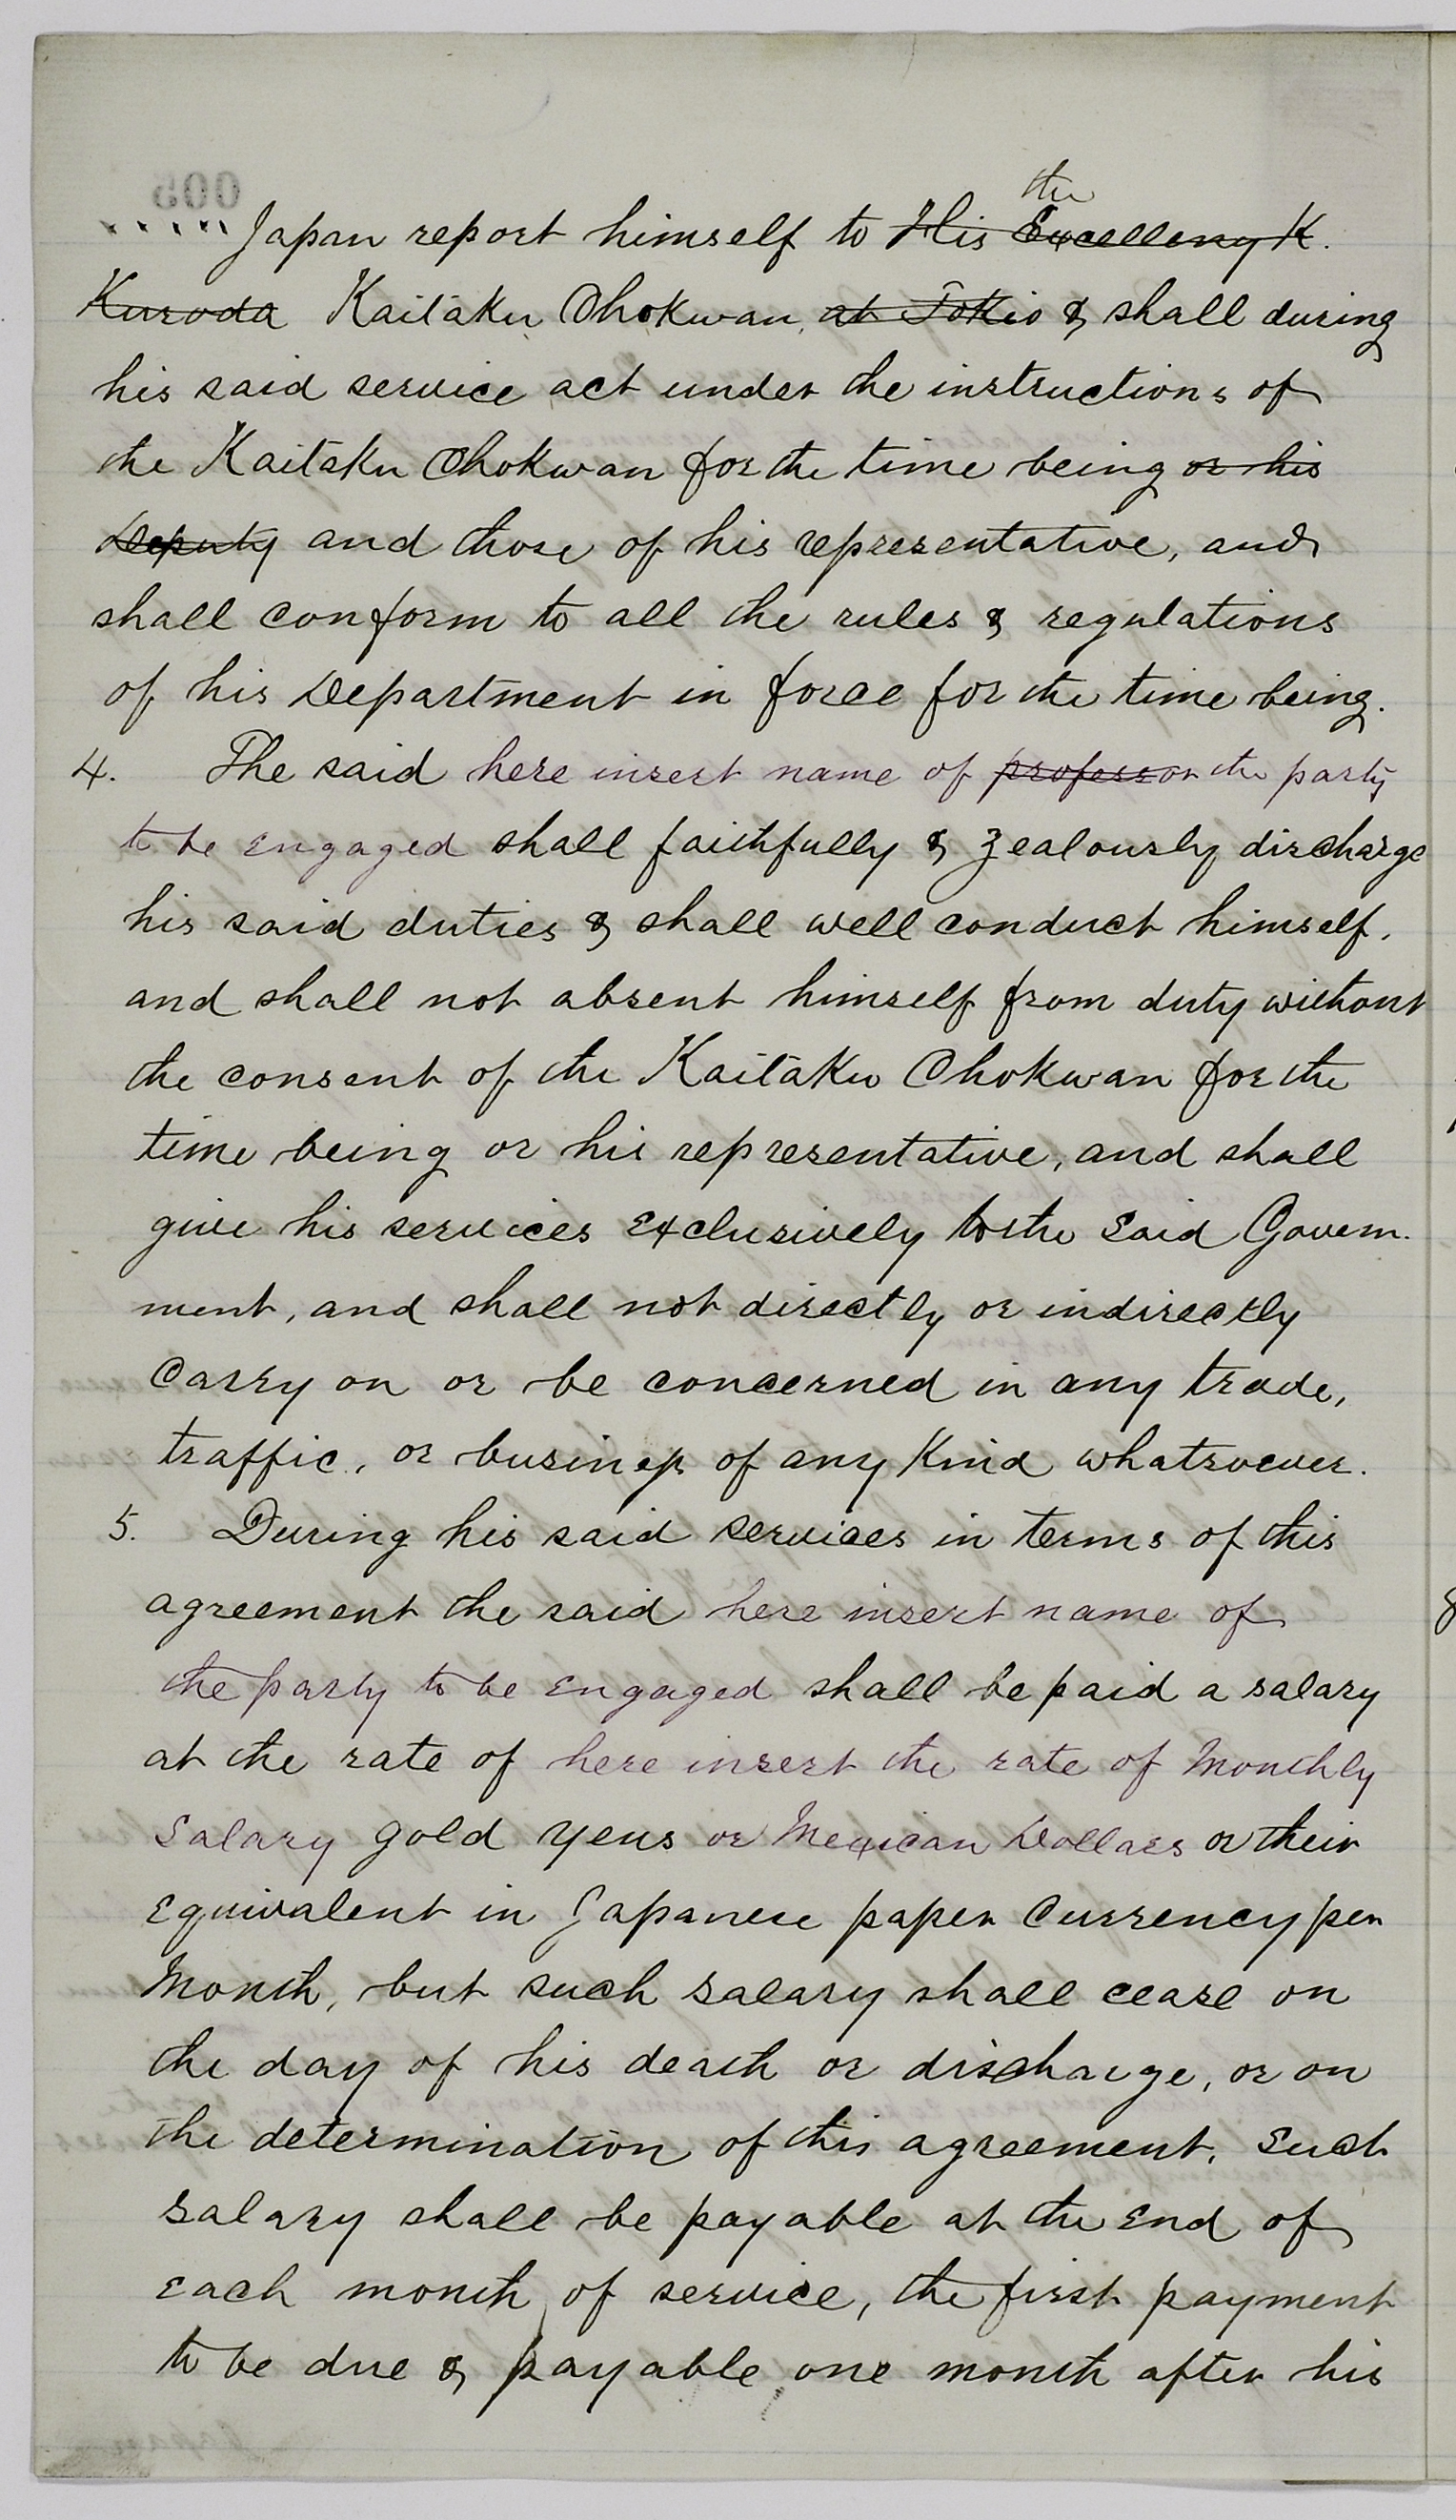 the
Japan report himself to His Excellency K.
Kuroda Kaitaku Chokwan, at Tokio & shall during
his said service act under the instructions of
the Kaitaku Chokwan for the time being or his
Deputy and those of his representative, and
shall conform to all the rules & regulations
of his Department in force for the time being.
4. The said here insert name of professor the party
to be engaged shall faithfully & zealously discharge
his said duties & shall well conduct himself,
and shall not absent himself from duty without
the consent of the Kaitaku Chokwan for the
time being or his representative, and shall
give his services exclusively to the said Govern-
ment, and shall not directly or indirectly
carry on or be concerned in any trade,
traffic, or business of any kind whatsoever.
5. During his said services in terms of this
agreement the said here insert name of
the party to be engaged shall be paid a salary
at the rate of here insert the rate of Monthly
Salary gold yens or Mexican Dollars or their
equivalent in Japanese paper currency per
Month, but such salary shall cease on
the day of his death or discharge, or on
the determination of this agreement. Such
salary shall be payable at the end of
each month of service, the first payment
to be due & payable one month after his